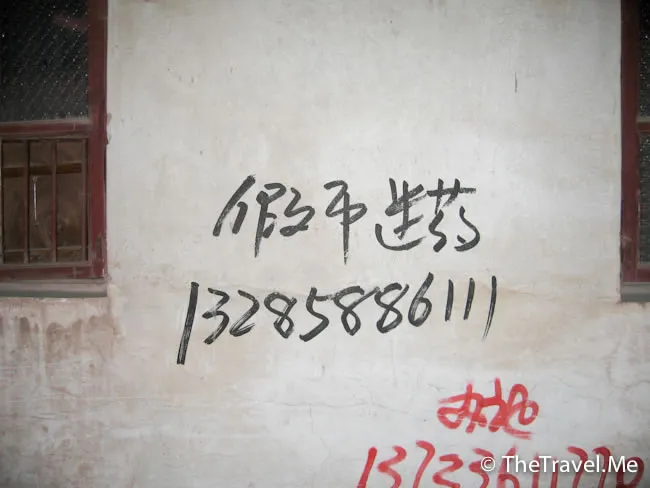 假币迷药
13285886111
办证
© TheTravel.Me